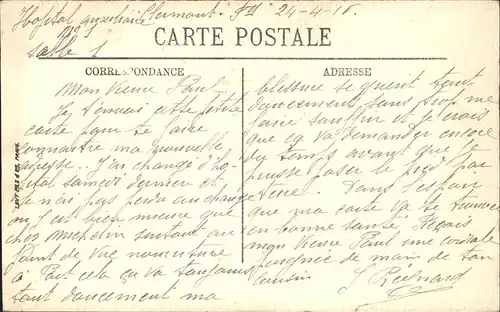 Hopital auxiliaire Clermont. Fd 24-4-16.
N°
Salle 1
CARTE POSTALE
CORRESPONDANCE
ADRESSE
Mon Vieux Paul.
Je t'envoi cette petite
carte pour te faire
connaitre ma nouvelle
adresse. J'ai changé d'ho
pital samedi dernier et
je n'ai pas perdu au change
on y est bien mieux que
chez Michelin surtout au
point de vue nourriture
à Part cela ça va toujours
tout doucement ma
blessure se guerit tout
doucement sans trop me
faire souffrir et je crois
que ça va demander encore
du temps avant que je
puisse poser le pied par
terre. Dans l'espoir
que ma carte va te trouver
en bonne santé Reçois
mon Vieux Paul une cordiale
poignée de main de ton
cousin